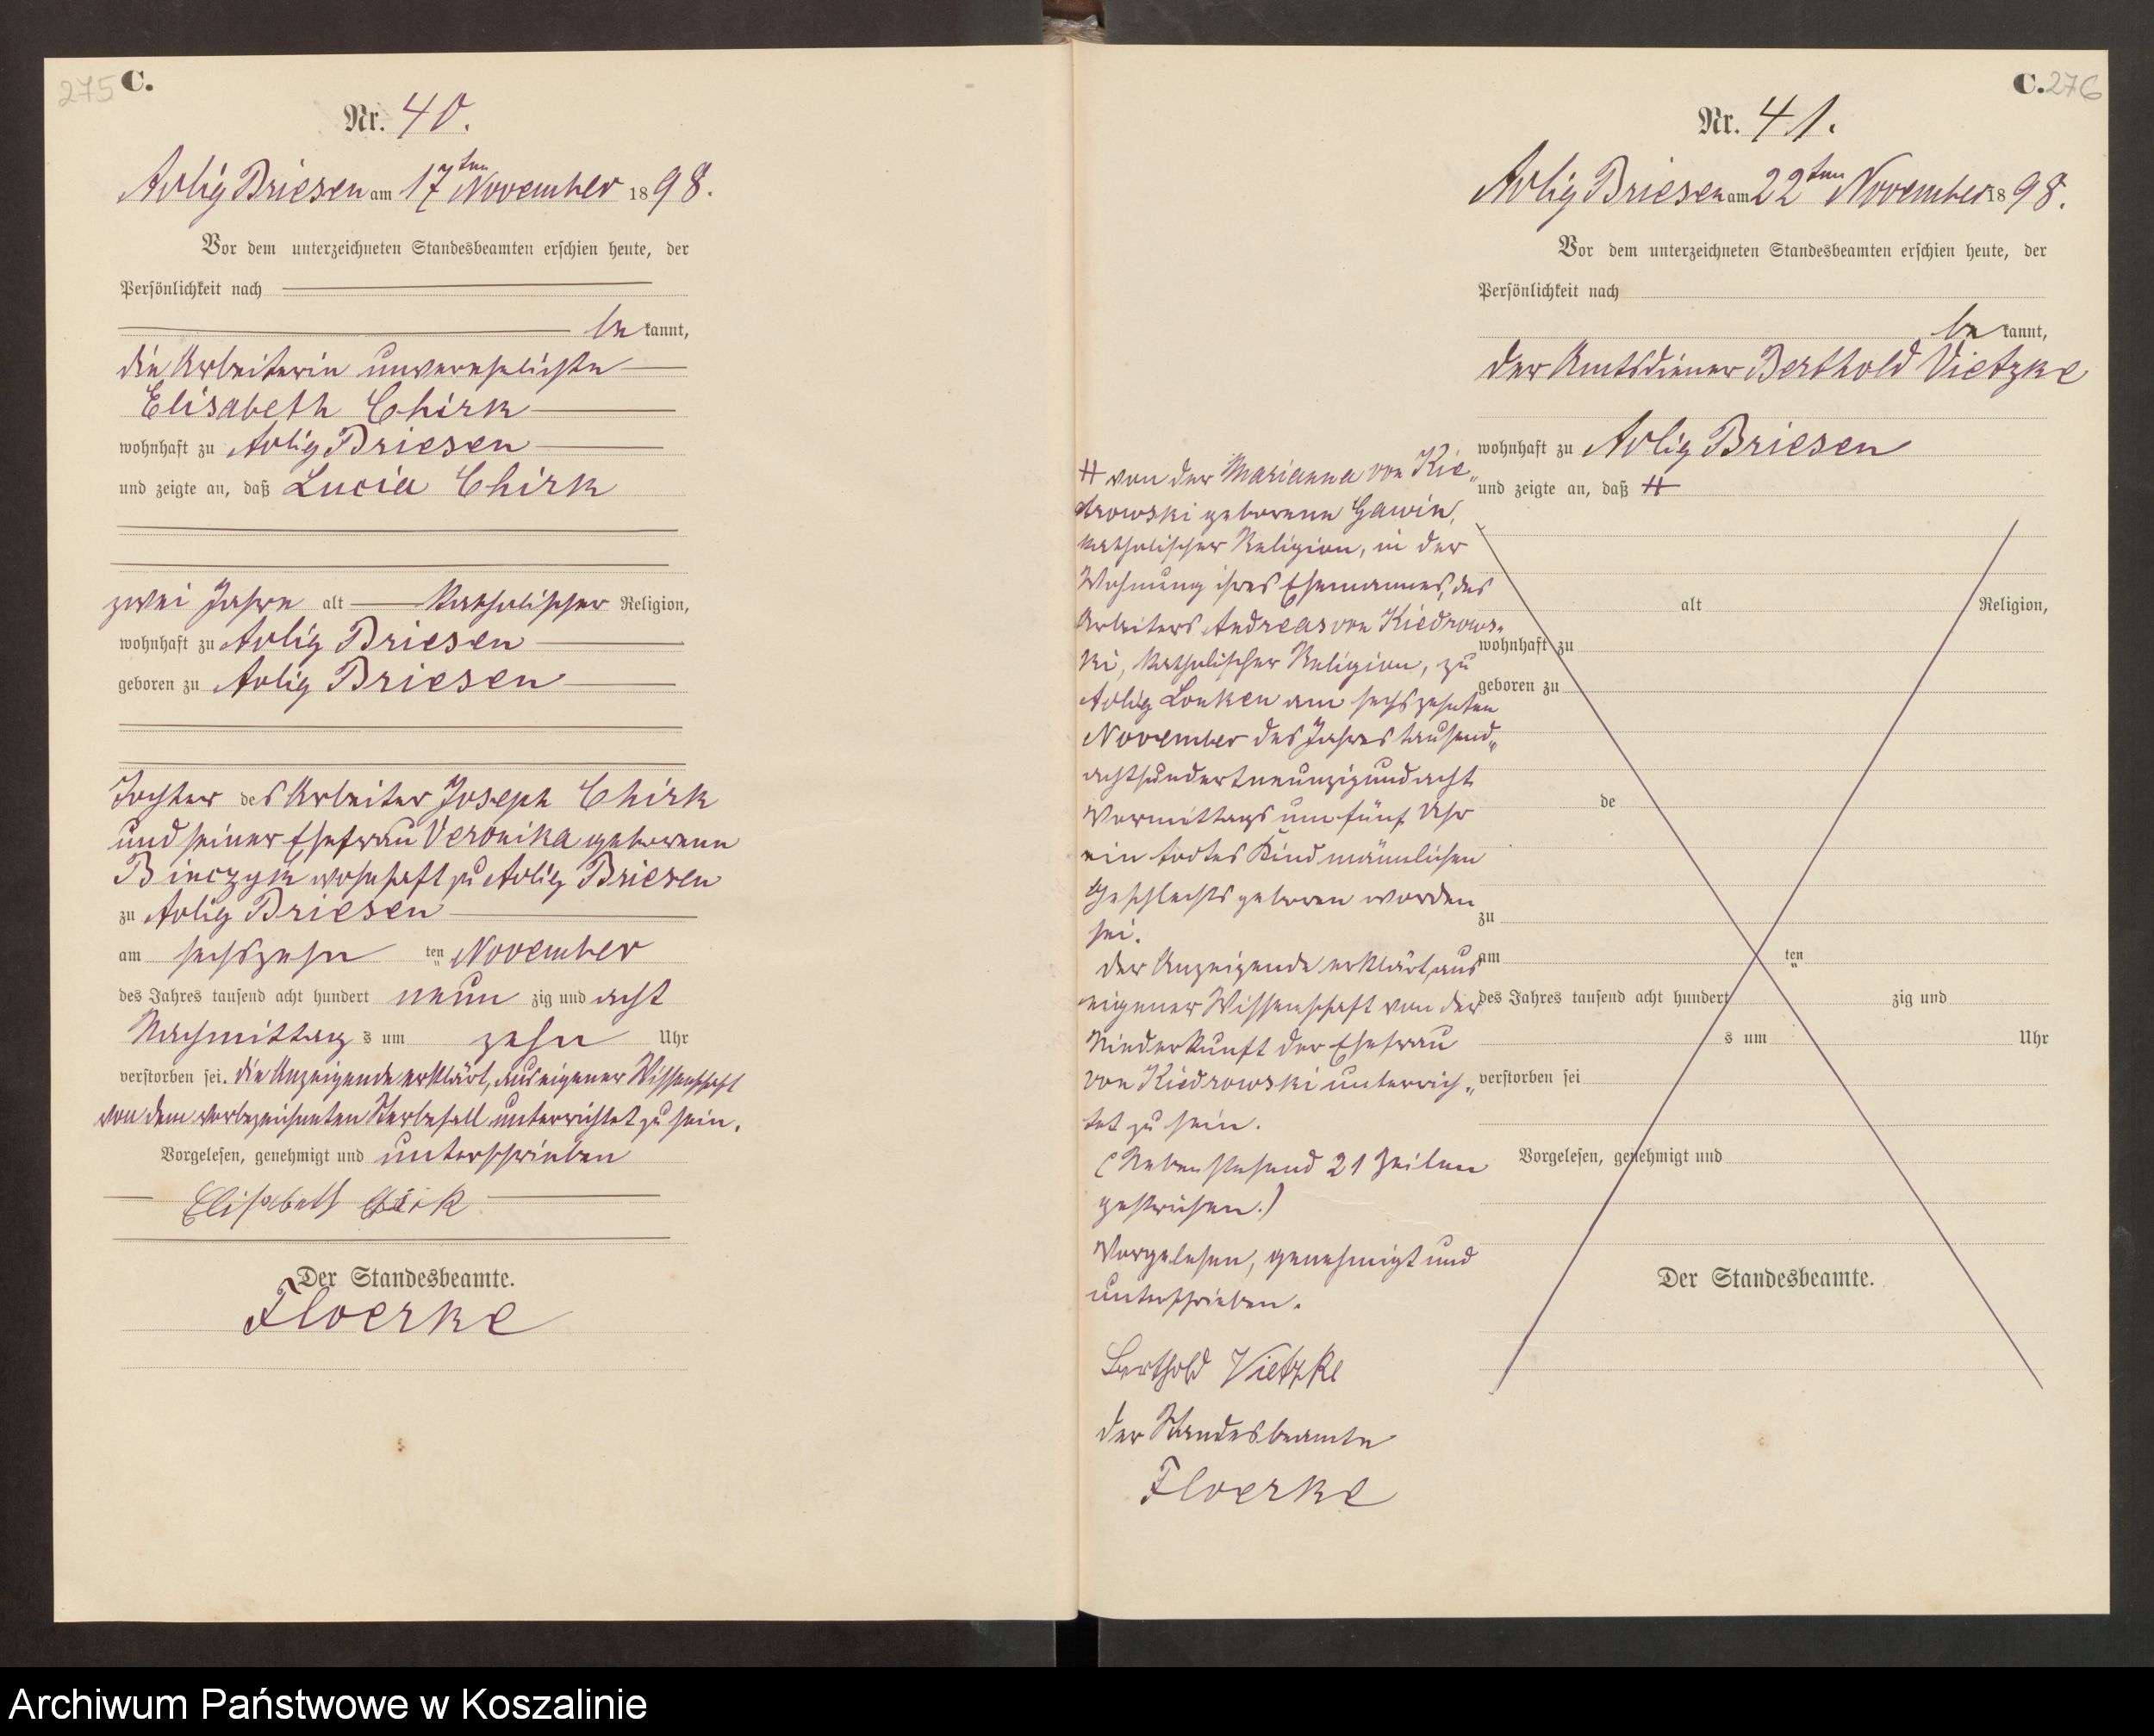 275 C.
Nr. 40.
Adlig Briesen am 17ten November 1898.
Vor dem unterzeichneten Standesbeamten erschien heute, der
Persönlichkeit nach
be kannt,
die Arbeiterin unverehelichte
Elisabeth Chirk
wohnhaft zu Adlig Briesen
und zeigte an, daß Lucia Chirk
zwei Jahre alt katholischer Religion,
wohnhaft zu Adlig Briesen
geboren zu Adlig Briesen
Tochter des Arbeiter Joseph Chirk
und seiner Ehefrau Veronika geborene
Binczyk wohnhaft zu Adlig Briesen
zu Adlig Briesen
am sechszehn ten November
des Jahres tausend acht hundert neun zig und acht
Nachmittag s um zehn Uhr
verstorben sei. Die Anzeigende erklärt, aus eigener Wissenschaft
von dem vorbezeichneten Sterbefall unterrichtet zu sein.
Vorgelesen, genehmigt und unterschrieben
Elisabeth
Der Standesbeamte.
Floerke
C. 276
Nr. 41.
Adlig Briesen am 22ten November 1898.
Vor dem unterzeichneten Standesbeamten erschien heute, der
Persönlichkeit nach
be kannt,
der Amtsdiener Berthold Vietzke
wohnhaft zu Adlig Briesen
und zeigte an, daß #
alt Religion,
wohnhaft zu
geboren zu
de
zu
am ten
des Jahres tausend acht hundert zig und
s um Uhr
verstorben sei
Vorgelesen, genehmigt und
Der Standesbeamte.
# von der Marianna von Kie„
drowski geborene Gawin,
katholischer Religion, in der
Wohnung ihres Ehemannes, des
Arbeiters Andreas von Kiedrows-
ki, katholischer Religion, zu
Adlig Lonken am sechszehnten
November des Jahres tausend„
achthundertneunzigundacht
Vormittags um fünf Uhr
ein todtes Kind männlichen
Geschlechts geboren worden
sei.
Der Anzeigende erklärt, aus
eigener Wissenschaft von der
Niederkunft der Ehefrau
von Kiedrowski unterrich„
tet zu sein.
(Nebenstehend 21 Zeilen
gestrichen.)
Vorgelesen, genehmigt und
unterschrieben.
Berthold Vietzke
Der Standesbeamte
Floerke
Archiwum Państwowe w Koszalinie